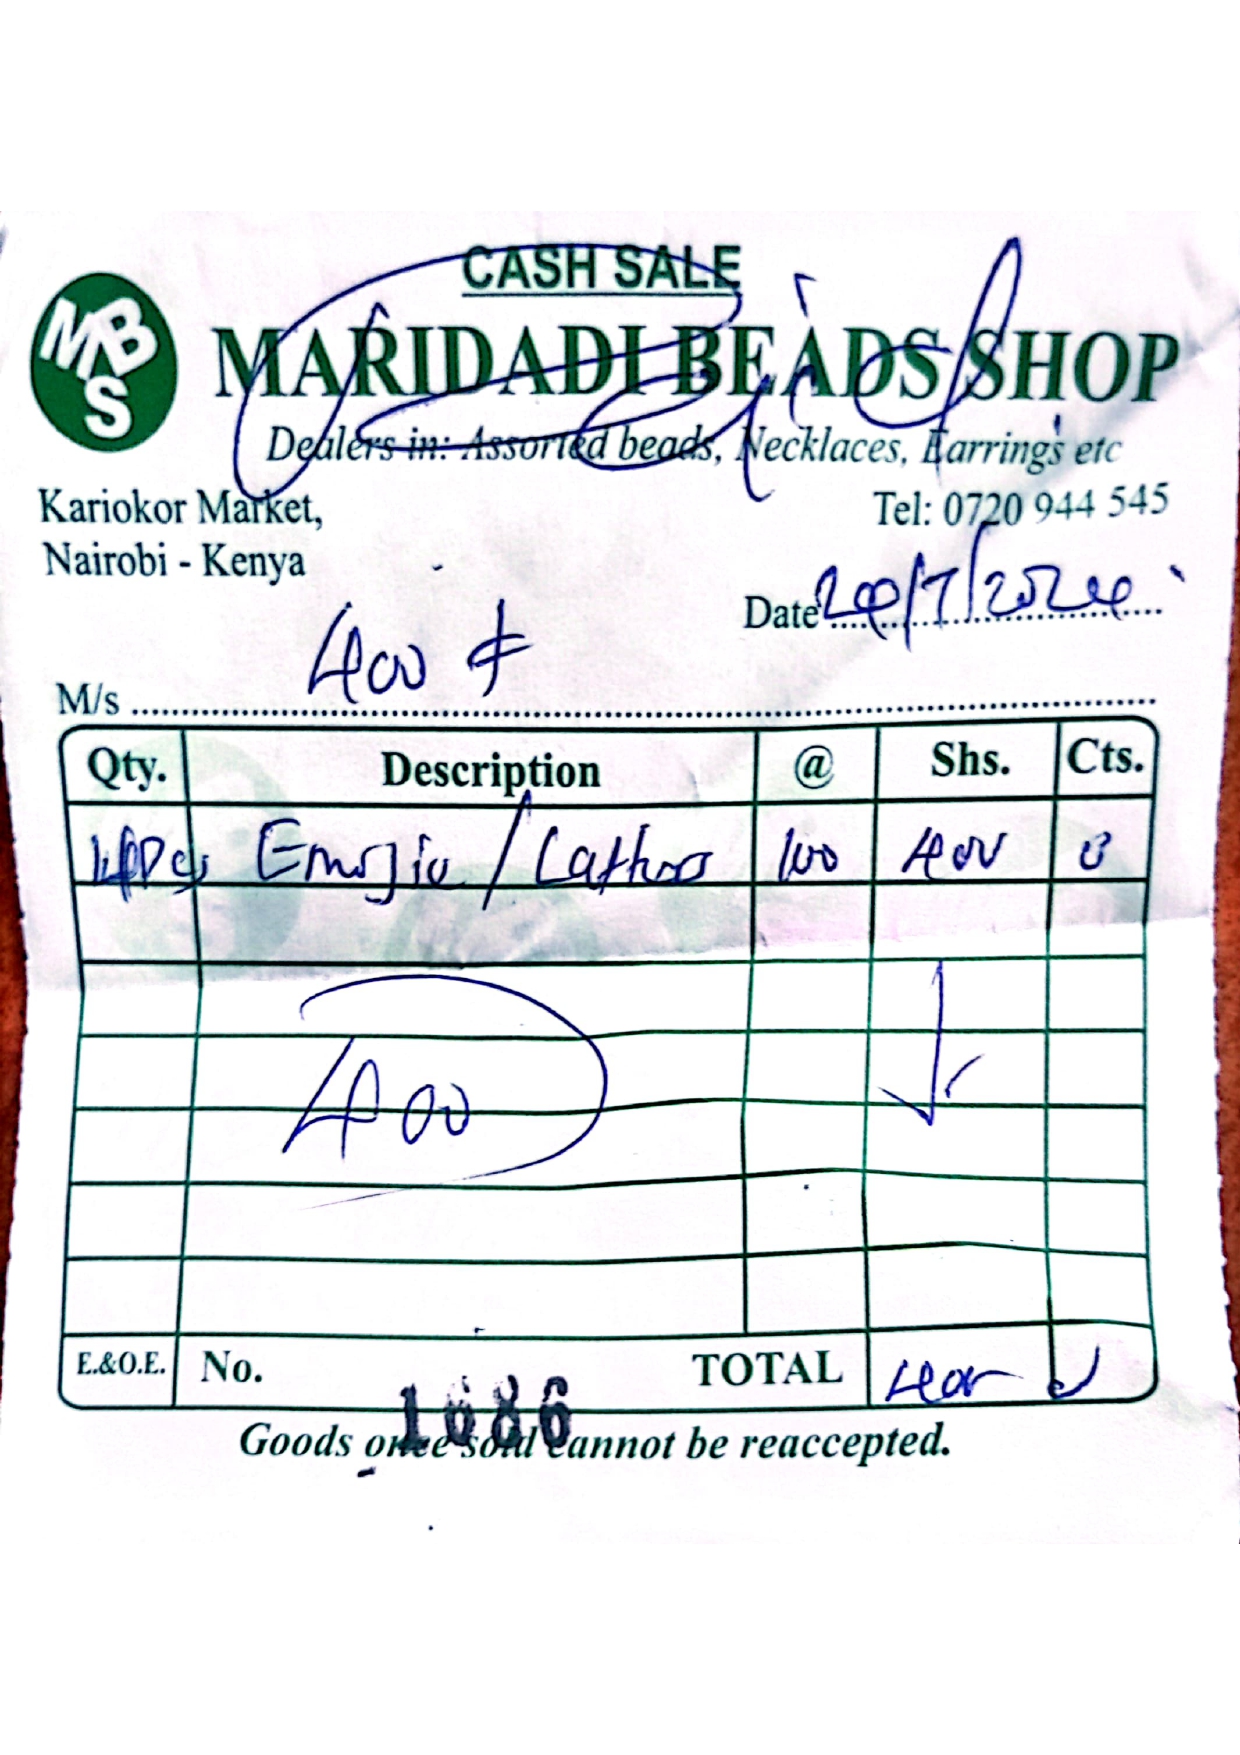 CASH SALE
MBS
MARIDADI BEADS SHOP
Paid
Dealers in: Assorted beads, Necklaces, Earrings etc
Kariokor Market,
Tel: 0720 944 545
Nairobi - Kenya
Date
400
M/s
Qty. Description @ Shs. Cts.
4Pcs / 100 400
400
E.&O.E. No. 1686 TOTAL 400
Goods once sold cannot be reaccepted.